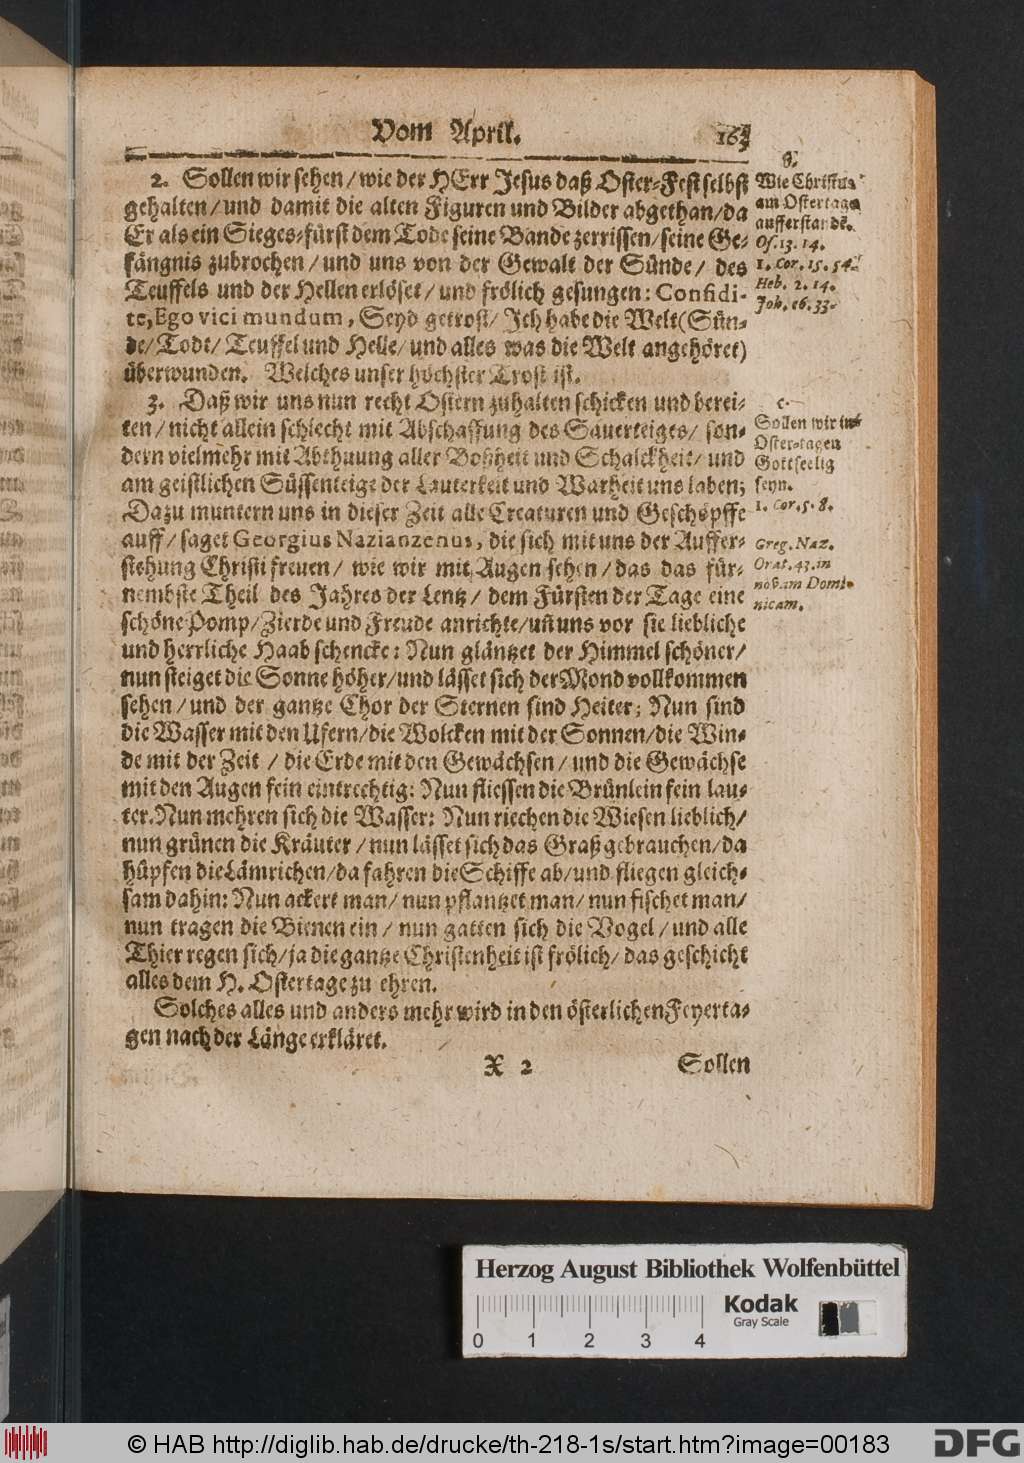 Vom April.
2. Sollen wir sehen / wie der HErr Jesus daß Oster-Fest selbst
gehalten / und damit die alten Figuren und Bilder abgethan / da
Er als ein Sieges-fürst dem Tode seine Bande zerrissen / seine Ge-
fängnis zubrochen / und uns von der Gewalt der Sünde / des
Teuffels und der Hellen erlöset / und frölich gesungen: Confidi-
te, Ego vici mundum, Seyd getrost / Ich habe die Welt (Sün-
de / Todt / Teuffel und Helle / und alles was die Welt angehöret)
überwunden. Welches unser höchster Trost ist.
3. Daß wir uns nun recht Ostern zuhalten schicken und berei-
ten / nicht allein schlecht mit Abschaffung des Sauerteiges / son-
dern vielmehr mit Abthuung aller Boßheit und Schalckheit / und
am geistlichen Süssenteige der Lauterkeit und Warheit uns laben;
Dazu muntern uns in dieser Zeit alle Creaturen und Geschöpffe
auff / saget Georgius Nazianzenus, die sich mit uns der Auffer-
stehung Christi freuen / wie wir mit Augen sehen / das das für-
nembste Theil des Jahres der Lentz / dem Fürsten der Tage eine
schöne Pomp / Zierde und Freude anrichte / uñ uns vor sie liebliche
und herrliche Haab schencke: Nun gläntzet der Himmel schöner /
nun steiget die Sonne höher / und lässet sich der Mond vollkommen
sehen / und der gantze Chor der Sternen sind Heiter; Nun sind
die Wasser mit den Ufern / die Wolcken mit der Sonnen / die Win-
de mit der Zeit / die Erde mit den Gewächsen / und die Gewächse
mit den Augen fein eintrechtig: Nun fliessen die Brünlein fein lau-
ter. Nun mehren sich die Wasser: Nun riechen die Wiesen lieblich /
nun grünen die Kräuter / nun lässet sich das Graß gebrauchen / da
hüpfen die Lämrichen / da fahren die Schiffe ab / und fliegen gleich-
sam dahin: Nun ackert man / nun pflantzet man / nun fischet man /
nun tragen die Bienen ein / nun gatten sich die Vogel / und alle
Thier regen sich / ja die gantze Christenheit ist frölich / das geschicht
alles dem H. Ostertage zu ehren.
Solches alles und anders mehr wird in den österlichen Feyerta-
gen nach der Länge erkläret.
X 2 Sollen
Wie Christus
am Ostertage
aufferstandē.
Os. 13. 14.
1. Cor. 15. 54.
Heb. 2. 14.
Joh. 16. 33.
c.
Sollen wir in
Oster-tagen
Gottseelig
seyn.
1. Cor. 5. 8.
Greg. Naz.
Orat. 43. in
novam Domi-
nicam.
Herzog August Bibliothek Wolfenbüttel
0 1 2 3 4
Kodak
Gray Scale
© HAB http://diglib.hab.de/drucke/th-218-1s/start.htm?image=00183
DFG